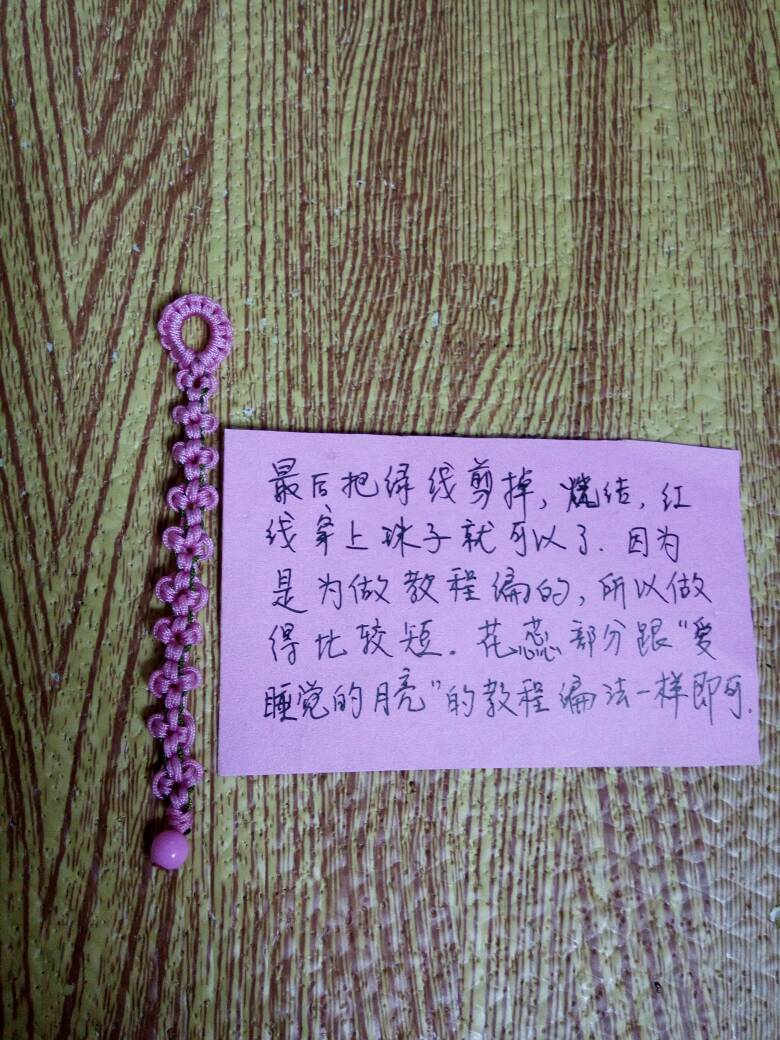 最后把绿线剪掉，烧结，红
线穿上珠子就可以了．因为
是为做教程编的，所以做
得比较短．花蕊部分跟“爱
睡觉的月亮”的教程编法一样即可．